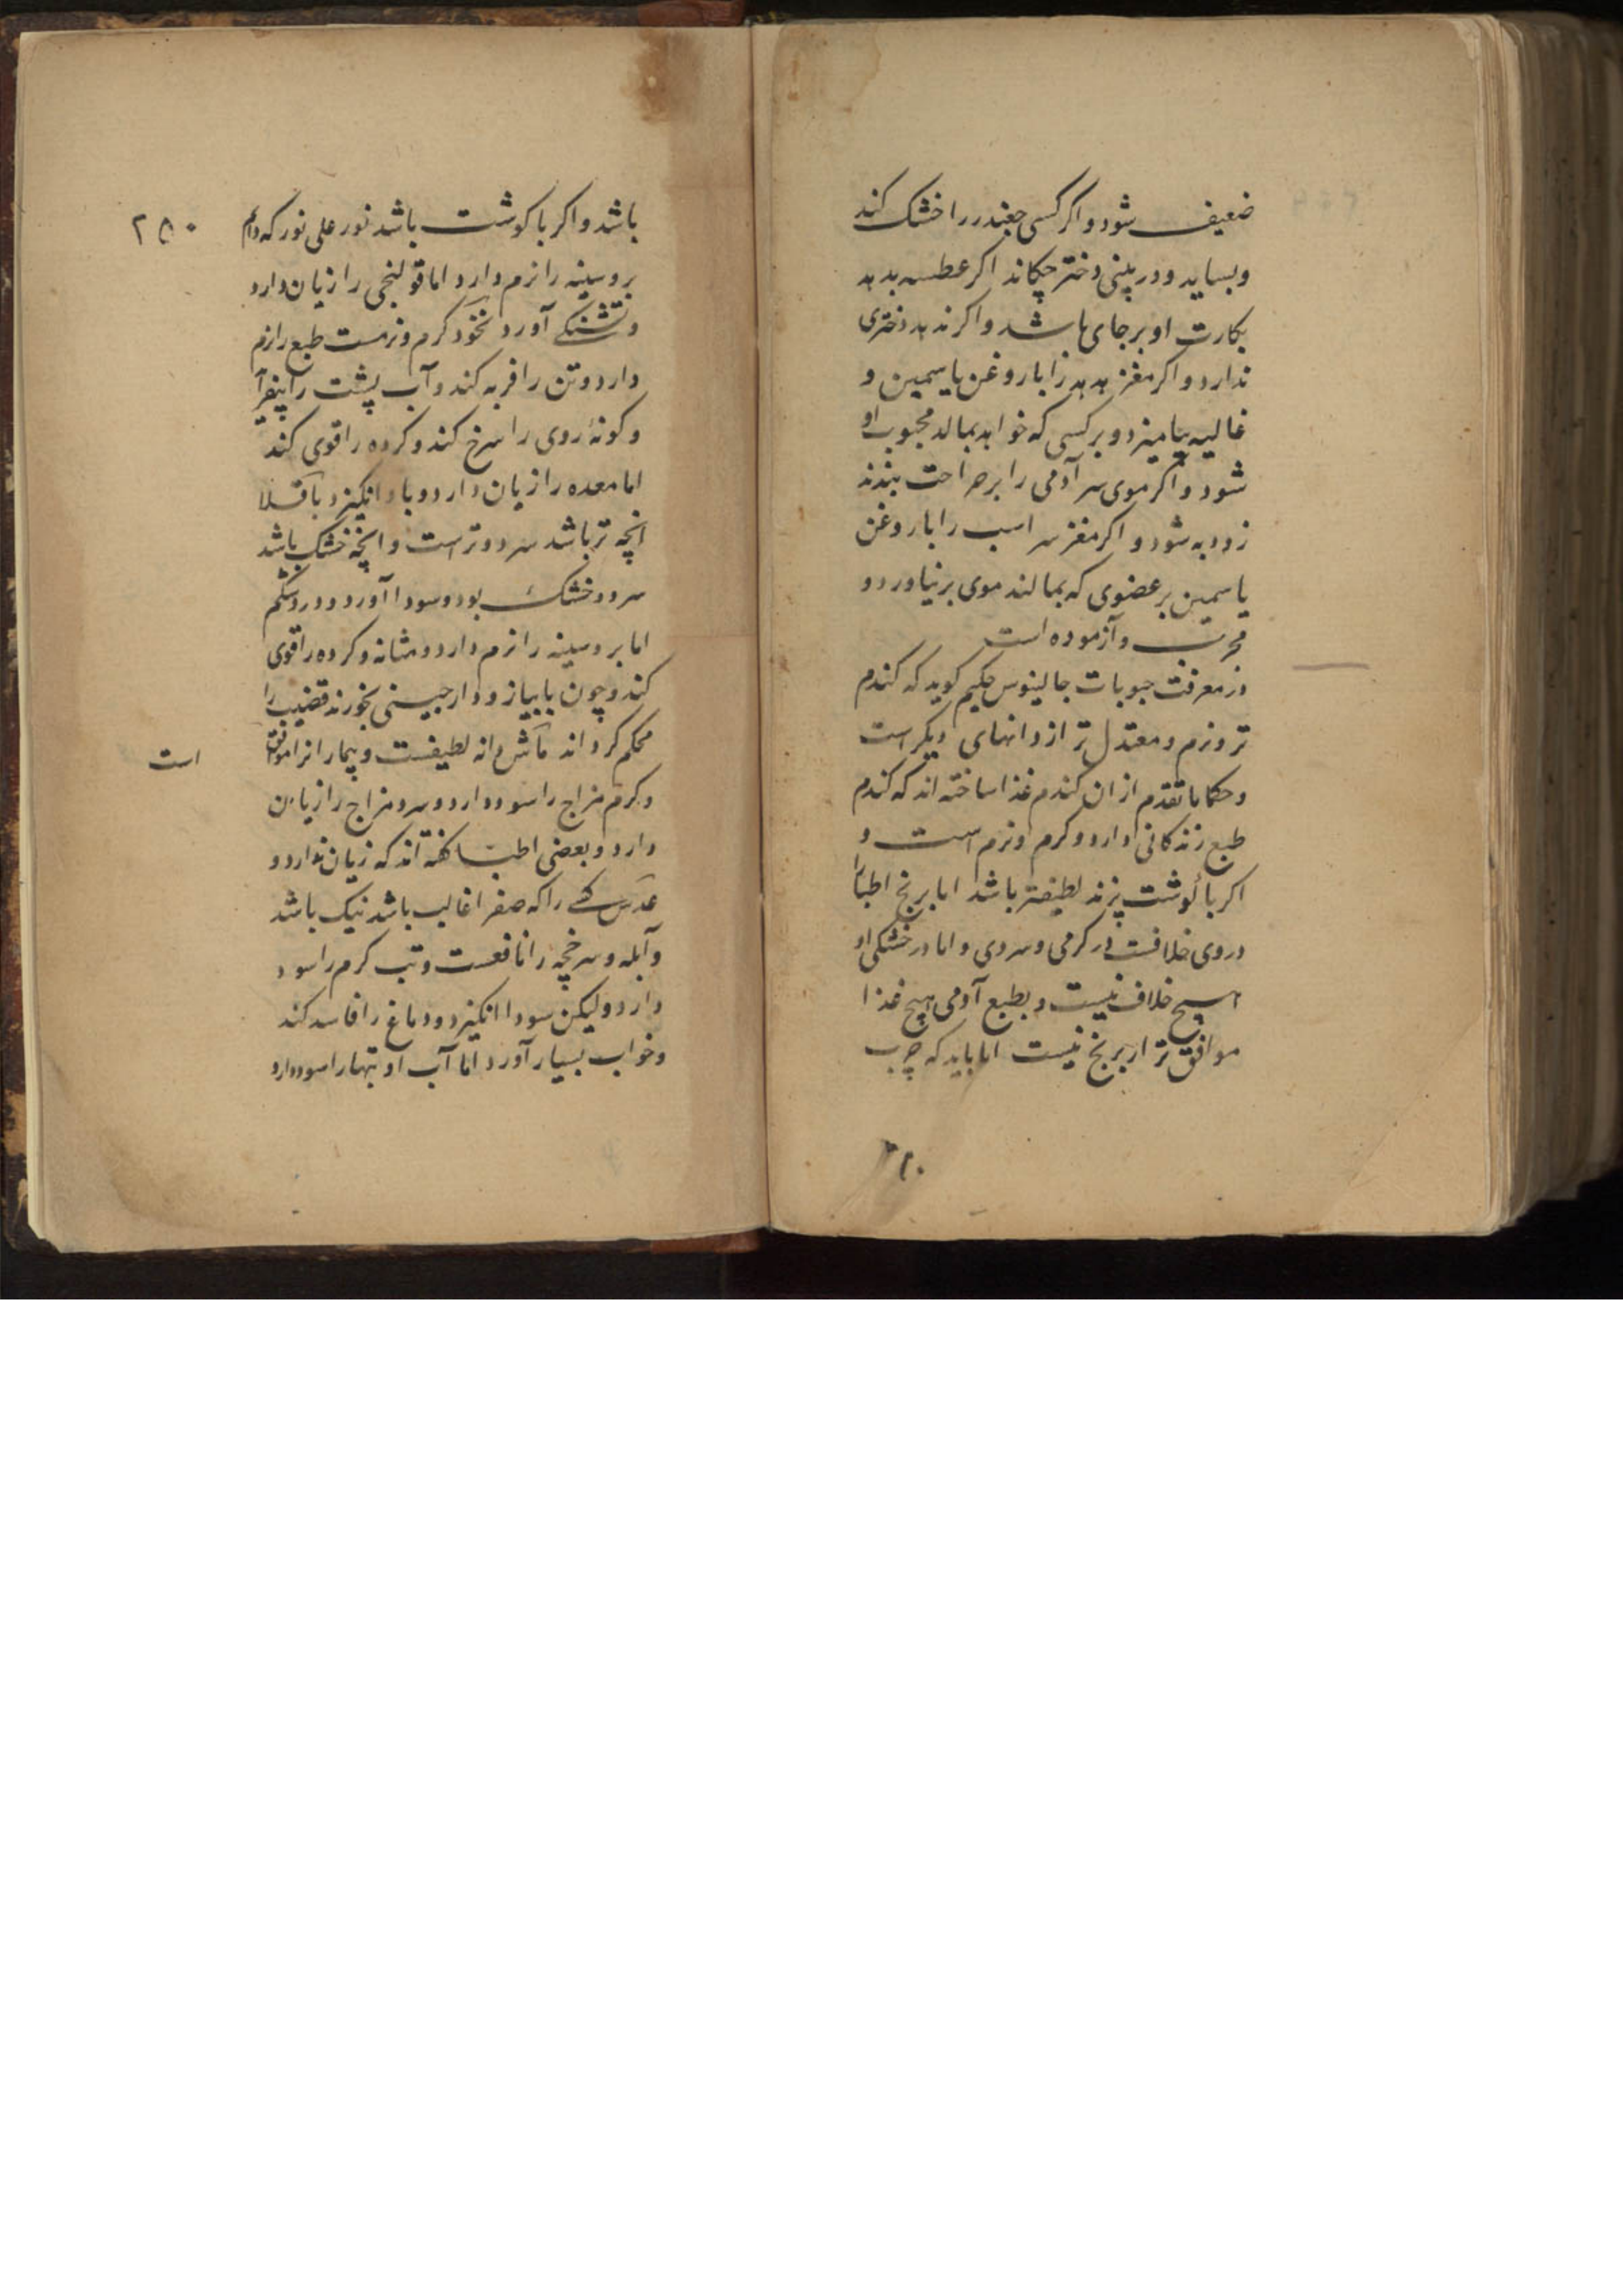 ضعیف شود و اکر کسی جغندر را خشک کند
و بساید و در بینی دختر چکاند اکر عطسه بدهد
بکارت او برجای باشد و اکر ندهد دختری
ندارد و اکر مغز هدهد را با روغن یاسمین و
غالیه بیامیزد و بر کسی که خواهد بمالد محبوب او
شود و اکر موی سر آدمی را بر جراحت بندند
زود به شود و اکر مغز سر اسب را با روغن
یاسمین بر عضوی که بمالند موی برنیاورد و
مجرب و آزموده است
در معرفت حبوبات جالینوس حکیم کوید که کندم
تر و نرم و معتدل تر از دانهای دیکر است
و حکما ما تقدم از ان کندم غذا ساخته اند که کندم
طبع زندکانی دارد و کرم و نرم است و
اکر با کوشت پزند لطیفتر باشد اما برنج اطبا را
در وی خلافست در کرمی و سردی و اما در خشکی او
هیچ خلاف نیست و بطبع آدمی هیچ غذا
موافق تر از برنج نیست اما باید که چرب
باشد و اکر با کوشت باشد نور علی نور که دایم
بر و سینه را نرم دارد اما قولنجی را زیان دارد
و تشنکی آورد نخود کرم و نرمست طبع را نرم
دارد و تن را فربه کند و آب پشت را بیفزاید
و کونهٔ روی را سرخ کند و کرده را قوی کند
اما معده را زیان دارد و باد انکیزد باقلا
انچه تر باشد سرد و تر است و انچه خشک باشد
سرد و خشک بود و سودا آورد و درد شکم
اما بر و سینه را نرم دارد و مثانه و کرده را قوی
کند و چون با پیاز و دارچینی بخورند قضیب را
محکم کرداند ماش دانه لطیفست و بیمارانرا موافق است
و کرم مزاج را سود دارد و سرد مزاج را زیان
دارد و بعضی اطبا کفته اند که زیان ندارد و
عدس کسی را که صفرا غالب باشد نیک باشد
و آبله و سرخجه را نافعست و تب کرم را سود
دارد و لیکن سودا انکیزد و دماغ را فاسد کند
و خواب بسیار آورد اما آب او تبها را سود دارد
۲۵۰